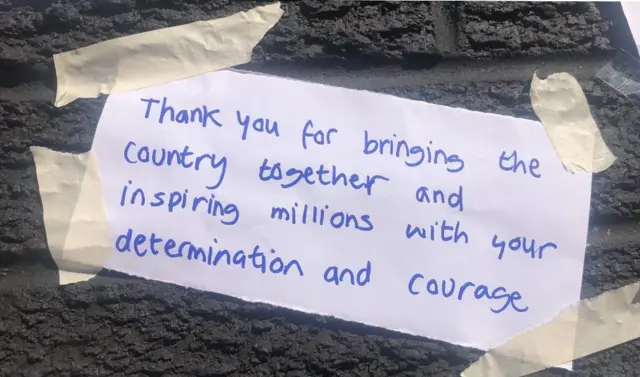 Thank you for bringing the
country together and
inspiring millions with your
determination and courage